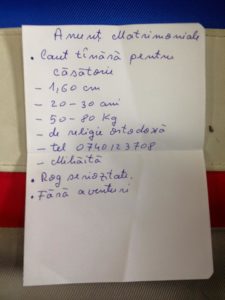 Anunț Matrimoniale
• Caut tînără pentru
căsătorie
- 1,60 cm
- 20-30 ani
- 50-80 Kg
- de religie ortodoxă
- tel 0740123708
- Mihăiță
• Rog seriozitate.
• Fără aventuri